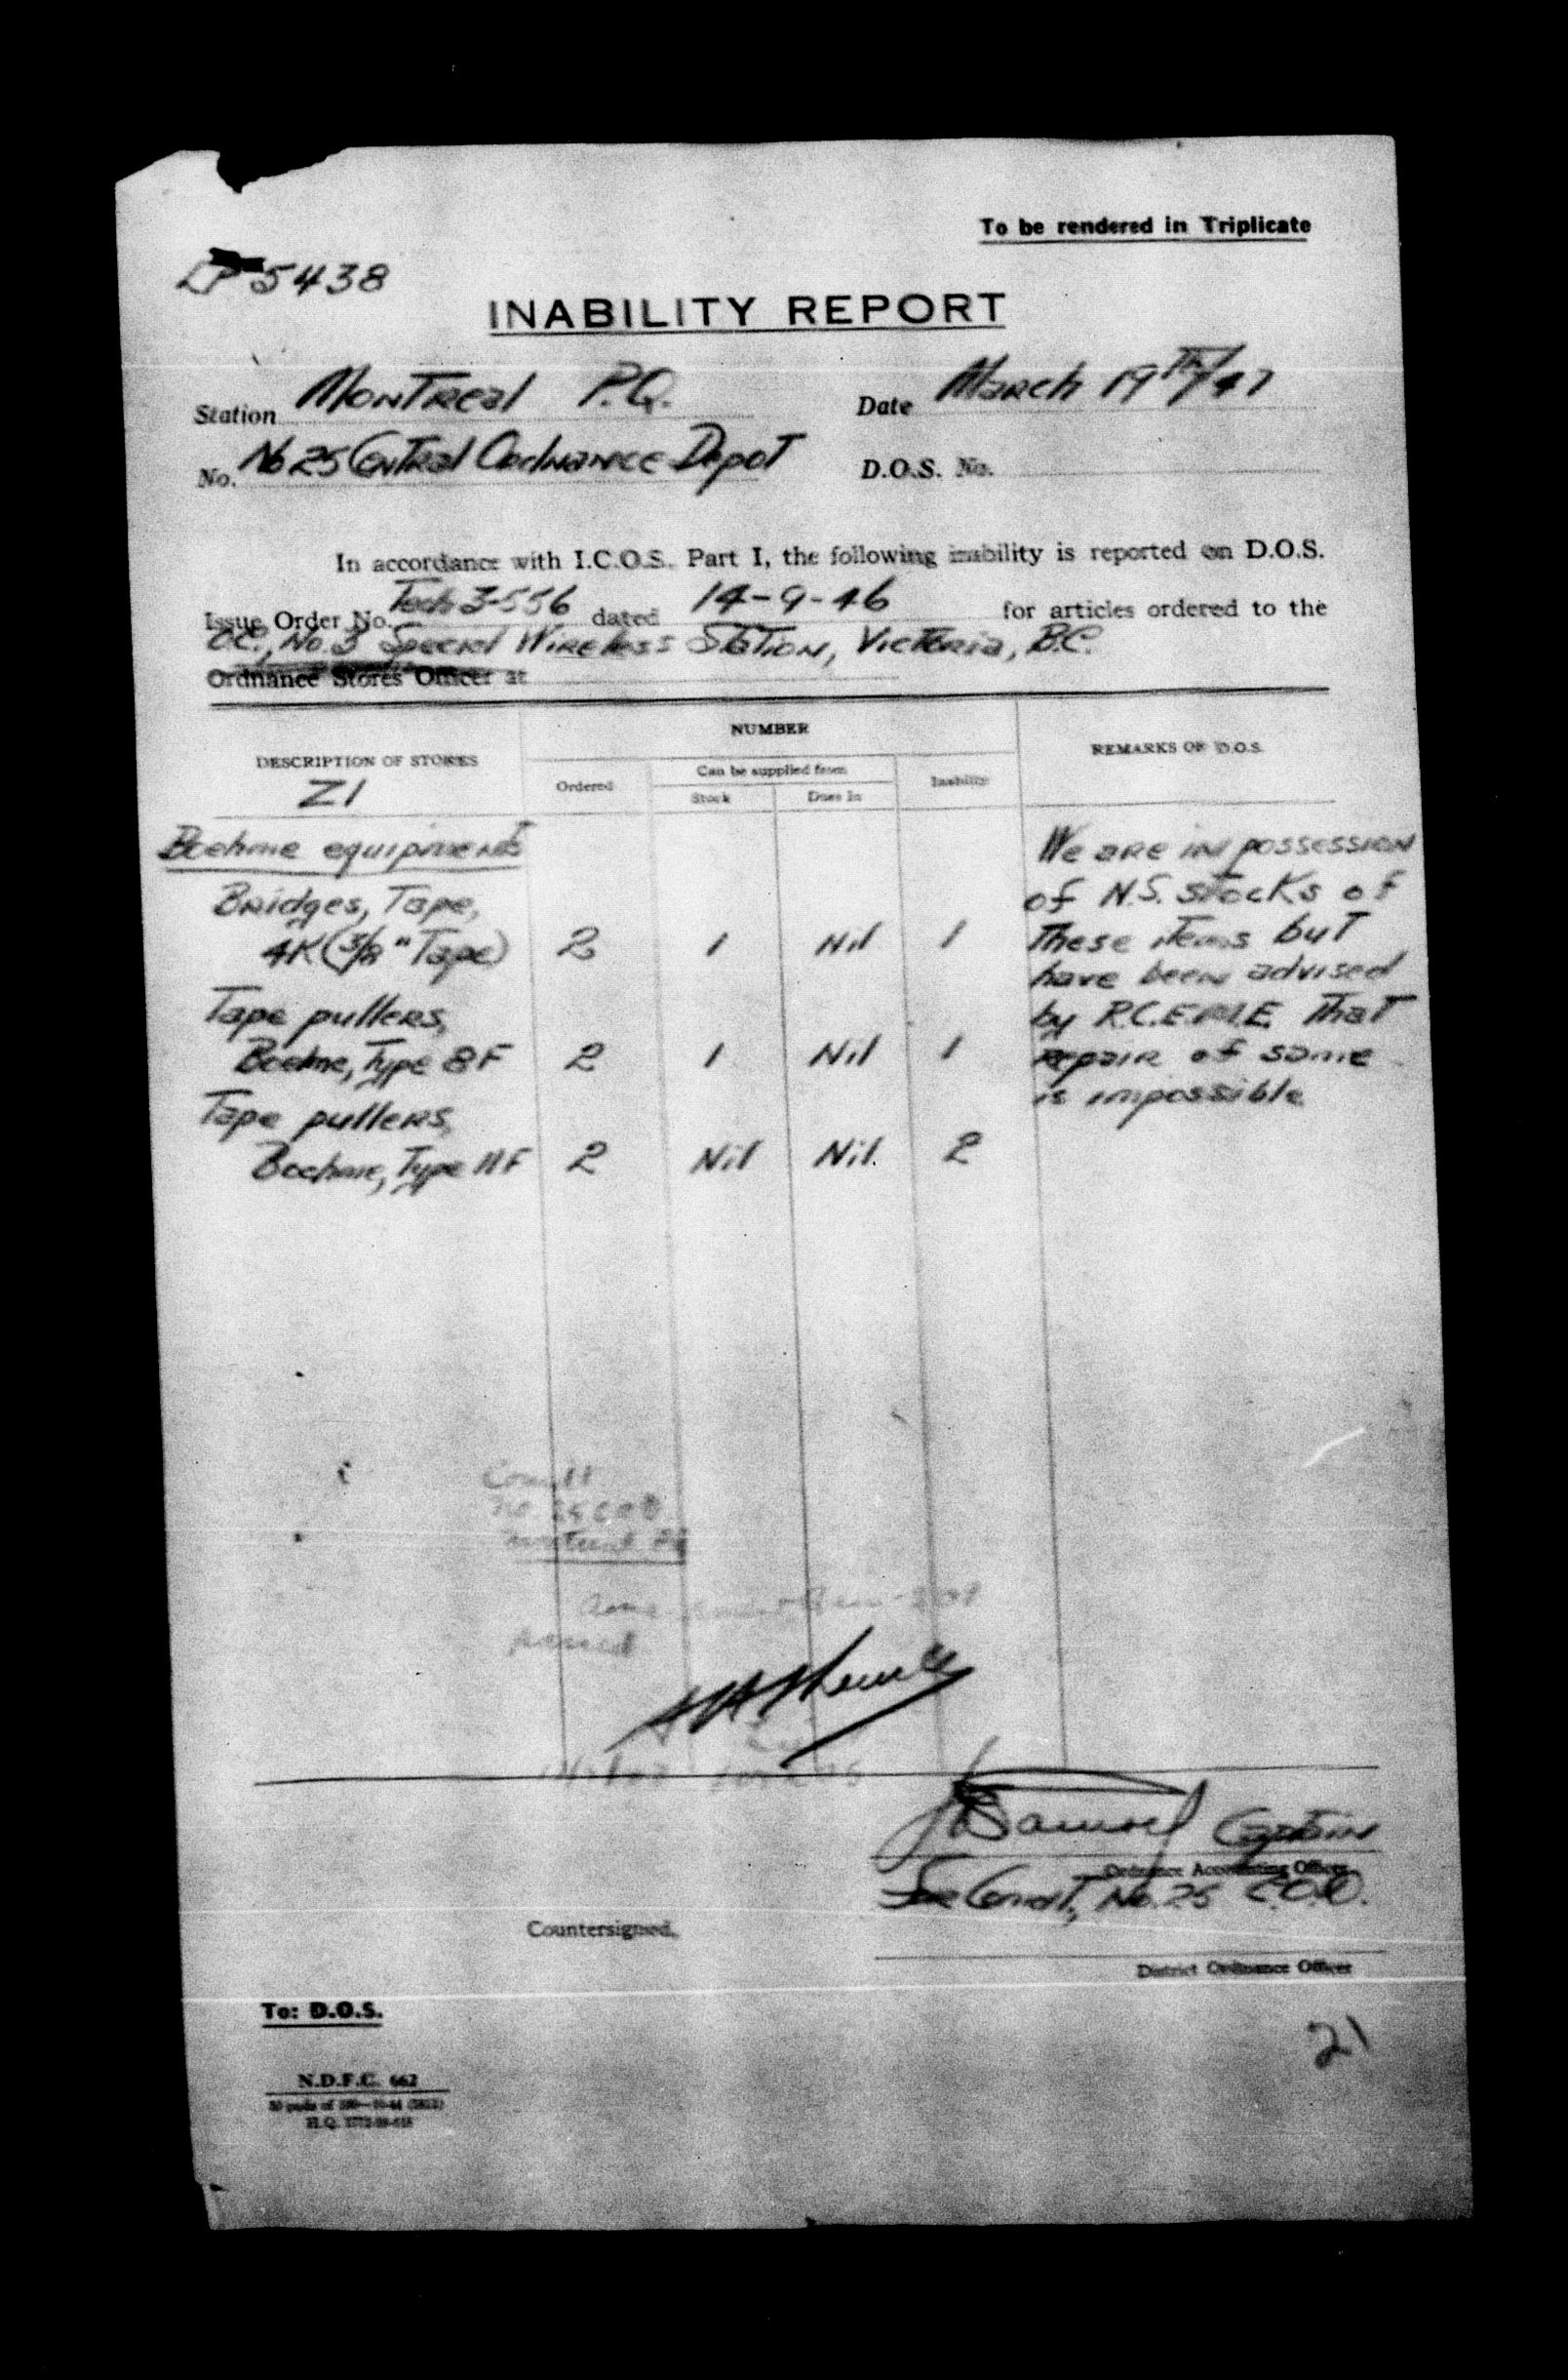 To be rendered in Triplicate
5438
INABILITY REPORT
Station Montreal P.Q.
Date March 19th/47
No. No 25 Central Ordnance Depot
D.O.S. No.
In accordance with I.C.O.S. Part I, the following inability is reported on D.O.S.
Issue Order No. Tech 3-556 dated 14-9-46 for articles ordered to the
O.C., No. 3 Special Wireless Station, Victoria, B.C.
Ordnance Stores Officer at
DESCRIPTION OF STORES
Z1
NUMBER
Ordered
Can be supplied from
Stock
Dues In
Inability
REMARKS OF D.O.S.
Boehme equipments
Bridges, Tape,
4K (3/8" Tape) 2 1 Nil 1
Tape pullers,
Boehme, Type 8F 2 1 Nil 1
Tape pullers,
Boehme, Type 11F 2 Nil Nil. 2
We are in possession
of N.S. stocks of
these items but
have been advised
by R.C.E.M.E. that
repair of same
is impossible
Captain
Ordnance Accounting Officer
Comdt, No. 25 C.O.D.
Countersigned,
District Ordnance Officer
To: D.O.S.
21
N.D.F.C. 662
H.Q.